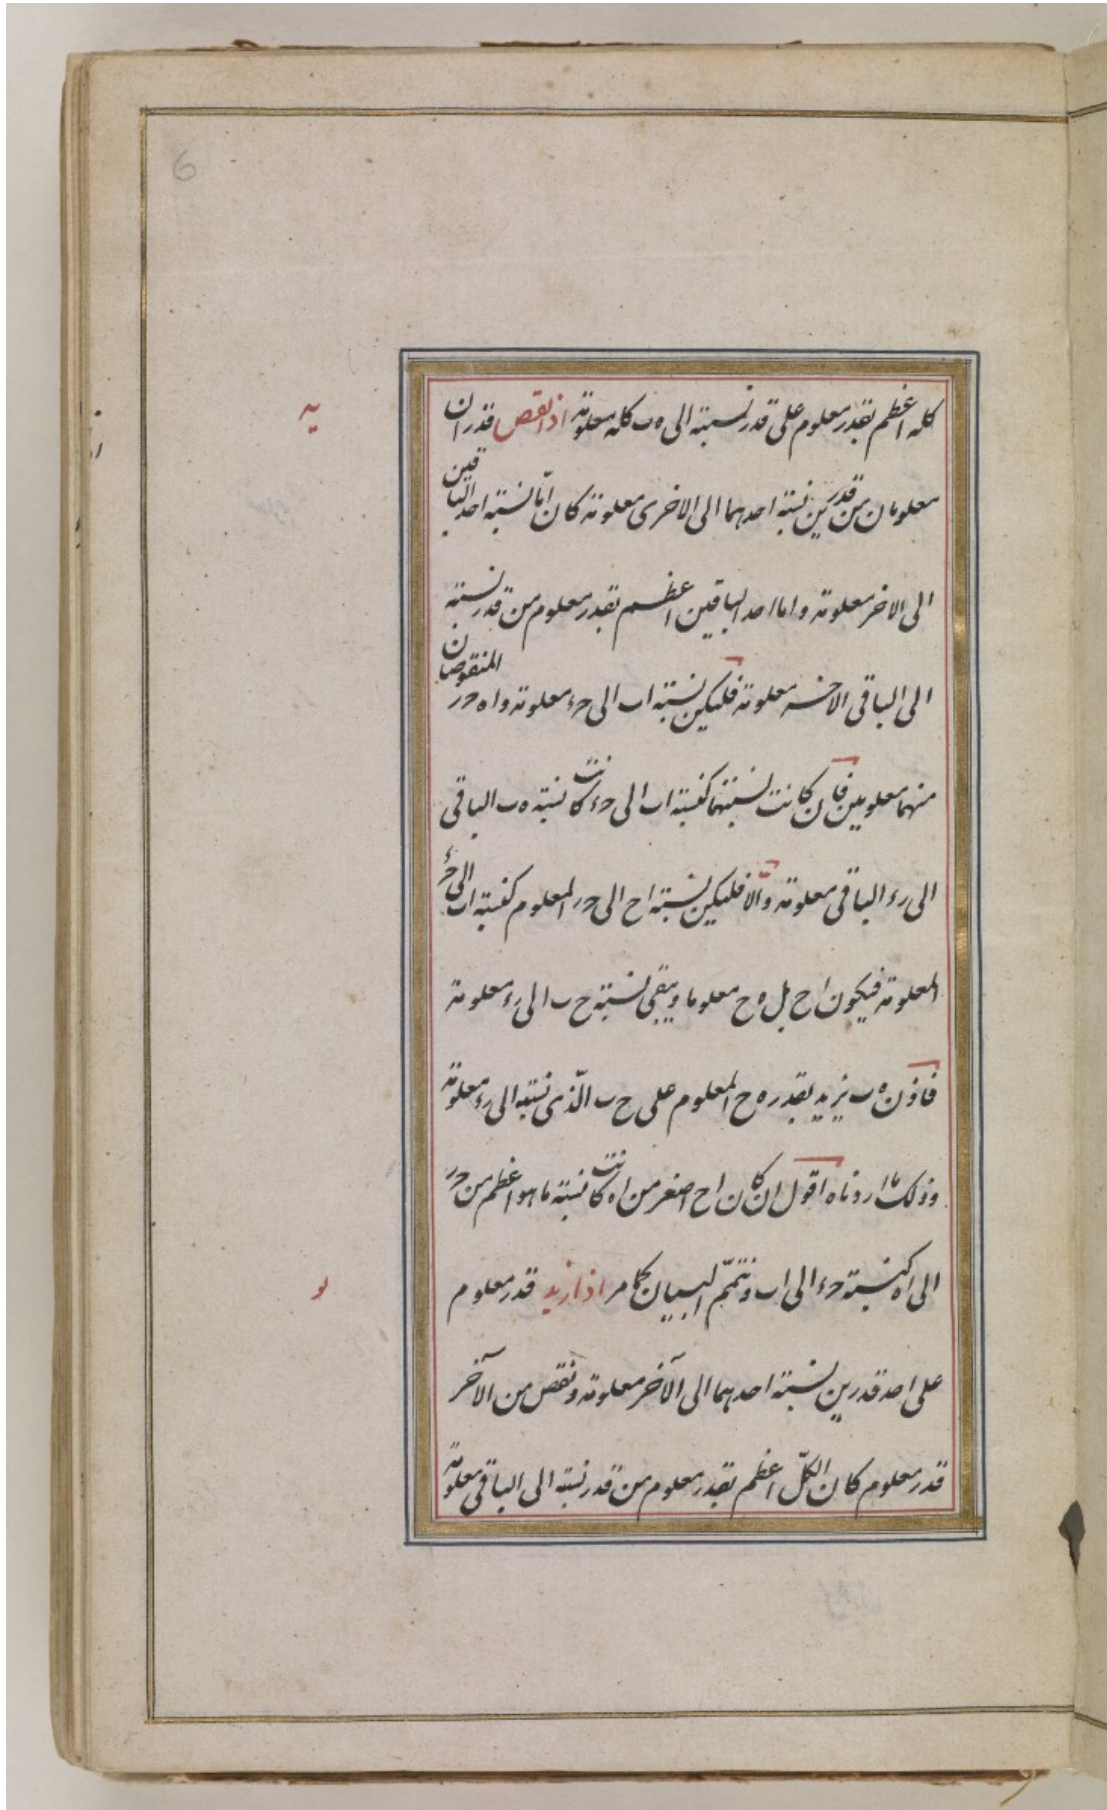 6
كله اعظم بقدر معلوم على قدر نسبته الى ه ب كله معلومة اذا نقص قدران
يه
معلومان من قدرين نسبة احدهما الى الاخرى معلومة كان امّا نسبة احد الباقين
الى الاخر معلومة واما احد الباقين اعظم بقدر معلوم من قدر نسبته
الى الباقى الاخر معلومة فليكن نسبة اب الى حء معلومة واه حر المنقوصان
منهما معلومين فان كانت نسبتهما كنسبة اب الى حء كانت نسبة ه ب الباقى
الى رء الباقى معلومة والّا فليكن نسبة اح الى حر المعلوم كنسبة اب الى حء
المعلومة فيكون اح بل ه ح معلوما ويبقى نسبة ح ب الى رء معلومة
فاذن ه ب يزيد بقدر ه ح المعلوم على ح ب الّذى نسبته الى رء معلومة
وذلك ما اردناه اقول ان كان اح اصغر من اه كانت نسبة ما هو اعظم من حر
الى اه كنسبة حء الى اب ونتمّم البيان كما مر اذا زيد قدر معلوم
يو
على احد قدرين نسبة احدهما الى الآخر معلومة ونقص من الآخر
قدر معلوم كان الكلّ اعظم بقدر معلوم من قدر نسبته الى الباقى معلومة